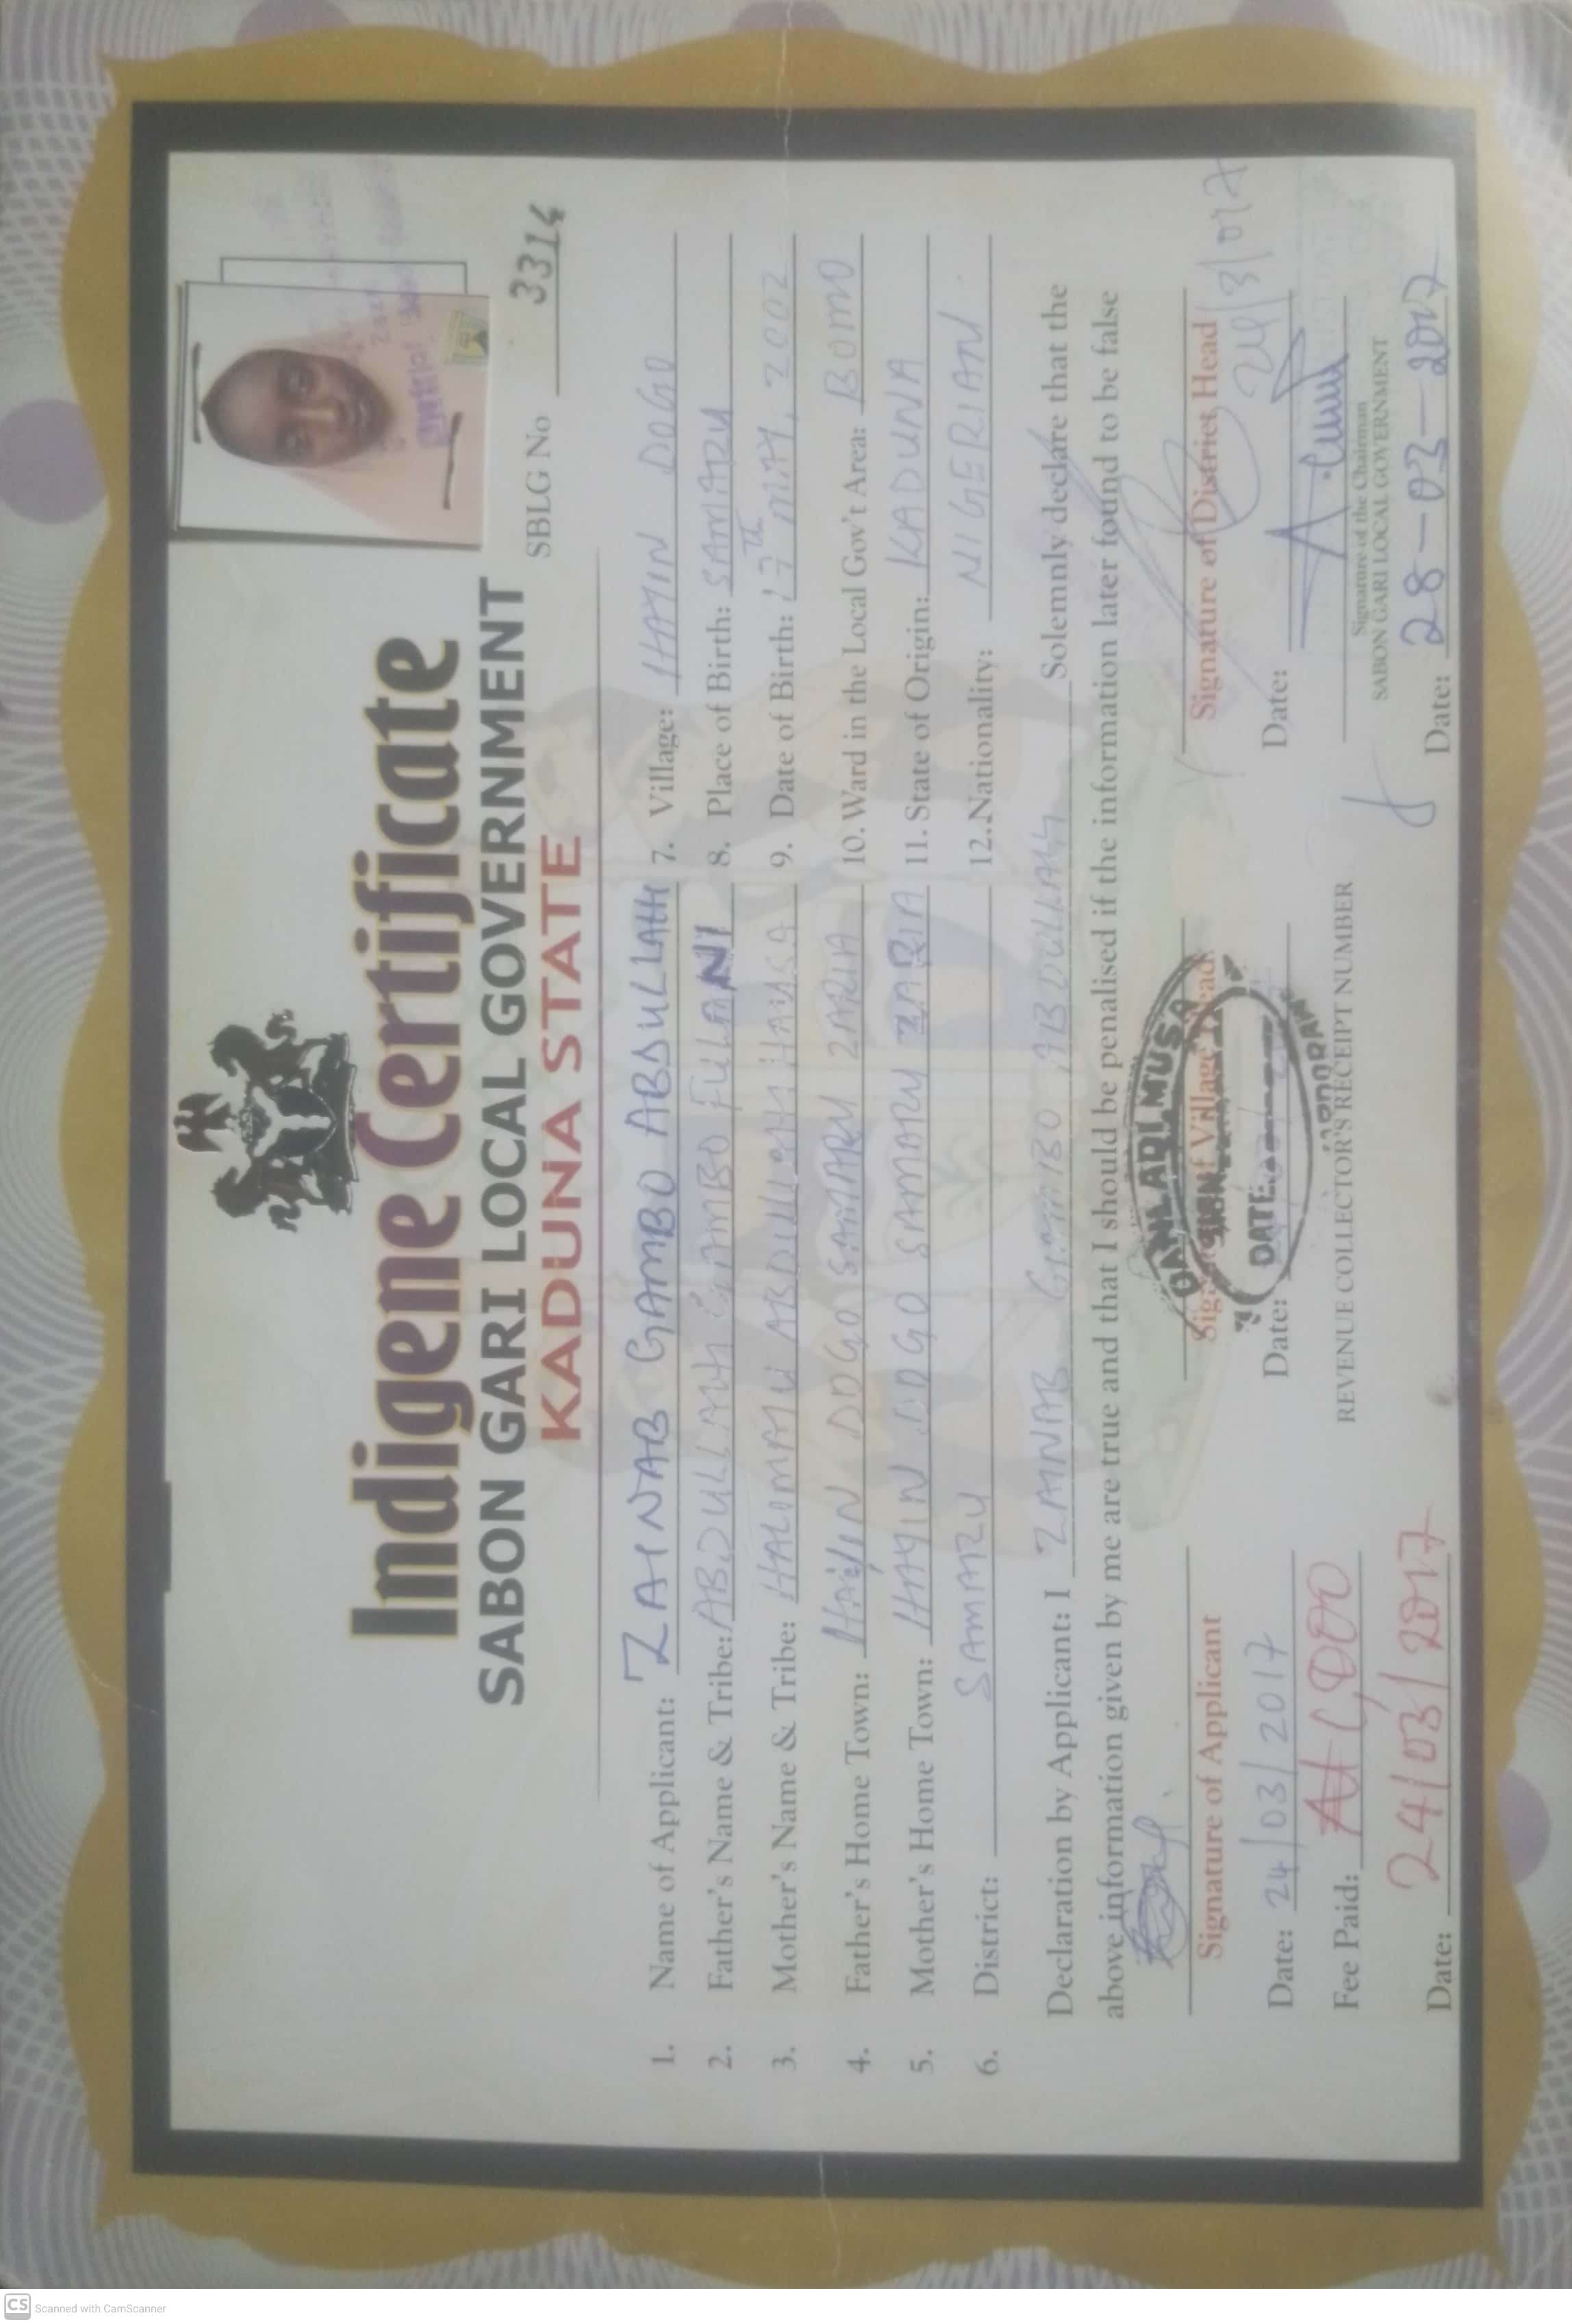 Indigene Certificate
SABON GARI LOCAL GOVERNMENT
KADUNA STATE
SBLG No 3314
1. Name of Applicant: ZAINAB GAMBO ABDULLAHI
2. Father's Name & Tribe: ABDULLAHI GAMBO FULANI
3. Mother's Name & Tribe: HALIMATU ABDULLAHI HAUSA
4. Father's Home Town: HAYIN DOGO SAMARU ZARIA
5. Mother's Home Town: HAYIN DOGO SAMARU ZARIA
6. District: SAMARU
7. Village: HAYIN DOGO
8. Place of Birth: SAMARU
9. Date of Birth: 17TH MAY, 2002
10. Ward in the Local Gov't Area: BOMO
11. State of Origin: KADUNA
12. Nationality: NIGERIAN
Declaration by Applicant: I ZAINAB GAMBO ABDULLAHI Solemnly declare that the
above information given by me are true and that I should be penalised if the information later found to be false
Signature of Applicant
Date: 24/03/2017
Fee Paid: ₦1,000
Date: 24/03/2017
DANLADI MUSA
Signature of Village Head
DATE:
Date:
REVENUE COLLECTOR'S RECEIPT NUMBER
Signature of District Head
Date: 24/3/017
Signature of the Chairman
SABON GARI LOCAL GOVERNMENT
Date: 28-03-2017
CS Scanned with CamScanner